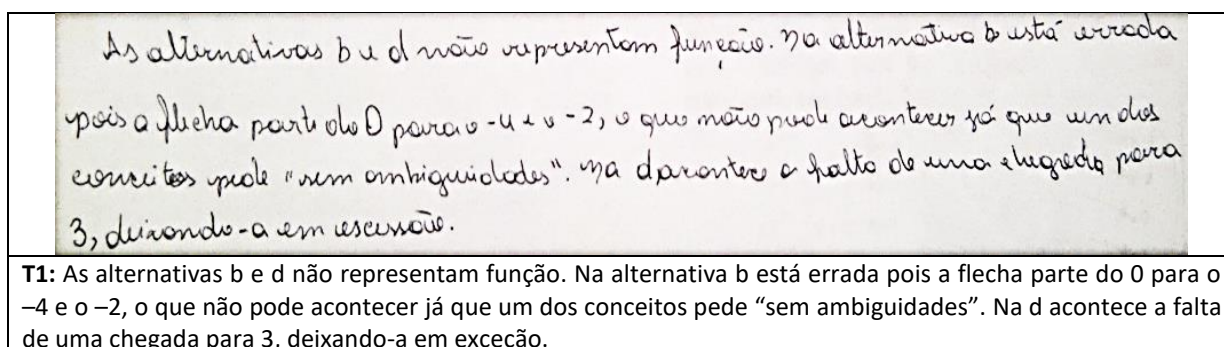 As alternativas b e d não representam função. Na alternativa b está errada
pois a flecha parte do 0 para o -4 e o -2, o que não pode acontecer já que um dos
conceitos pede "sem ambiguidades". Na d acontece a falta de uma chegada para
3, deixando-a em escessão.
T1: As alternativas b e d não representam função. Na alternativa b está errada pois a flecha parte do 0 para o
–4 e o –2, o que não pode acontecer já que um dos conceitos pede “sem ambiguidades”. Na d acontece a falta
de uma chegada para 3, deixando-a em exceção.